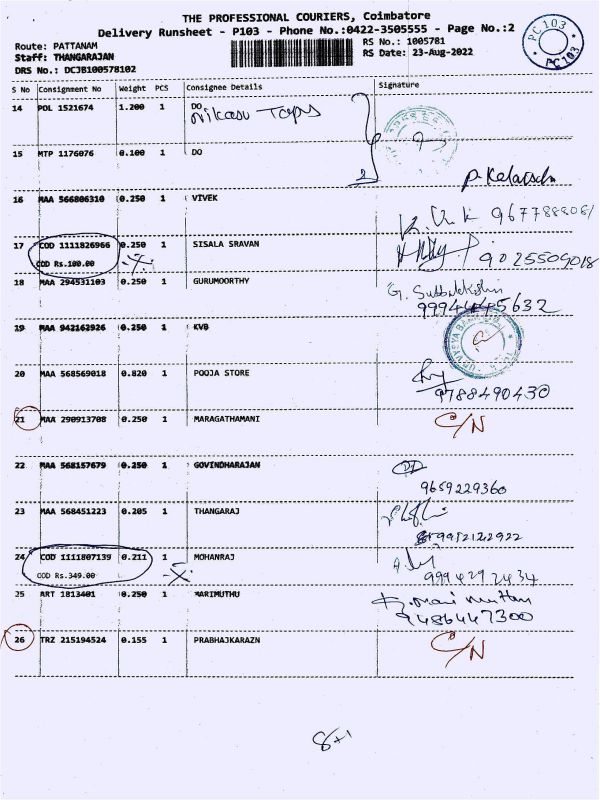 THE PROFESSIONAL COURIERS, Coimbatore
Delivery Runsheet - P103 - Phone No.:0422-3505555 - Page No.:2
Route: PATTANAM
RS No.: 1005781
Staff: THANGARAJAN
RS Date: 23-Aug-2022
DRS No.: DCJB100578102
PC 103
PC 103
S No Consignment No Weight PCS Consignee Details Signature
14 POL 1521674 1.200 1 DO
15 MTP 1176076 0.100 1 DO
16 MAA 566806310 0.250 1 VIVEK
17 COD 1111826966 0.250 1 SISALA SRAVAN
COD Rs.100.00
9025509018
18 MAA 294531103 0.250 1 GURUMOORTHY
19 MAA 942162926 0.250 1 KVB
20 MAA 568569018 0.820 1 POOJA STORE
9788490430
21 MAA 290913708 0.250 1 MARAGATHAMANI C/N
22 MAA 568157679 0.250 1 GOVINDHARAJAN
9659229360
23 MAA 568451223 0.205 1 THANGARAJ
24 COD 1111807139 0.211 1 MOHANRAJ
COD Rs.349.00
9994292434
25 ART 1813401 0.250 1 MARIMUTHU
9486447300
26 TRZ 215194524 0.155 1 PRABHAJKARAZN C/N
8+1